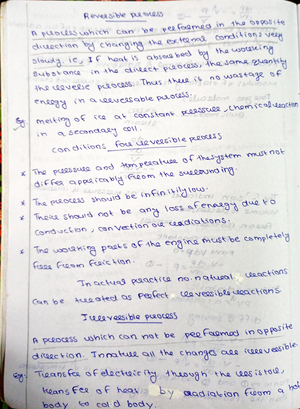 Reversible process
A process which can be performed in the opposite
direction by changing the external conditions very
slowly. ie, If heat is absorbed by the working
substance in the direct process, the same quantity
the reverse process. Thus, there is no wastage of
energy in a reversable process.
Eg: melting of ice at constant pressure, chemical reaction
in a secondary cell.
Conditions for reversible process
* The pressure and temperature of the system must not
differ appricably from the surrounding.
* The process should be infinitly low.
* There should not be any loss of energy due to
conduction, convection or radiations.
* The working parts of the engine must be completely
free from friction.
In actual practice no natural reactions
can be treated as perfect reversible reactions
Irreversible process
A process which can not be performed in opposite
direction. In nature all the changes are irreversible.
Eg: Transfer of electricity through the resistor,
transfer of heat by radiation from a hot
body to cold body.